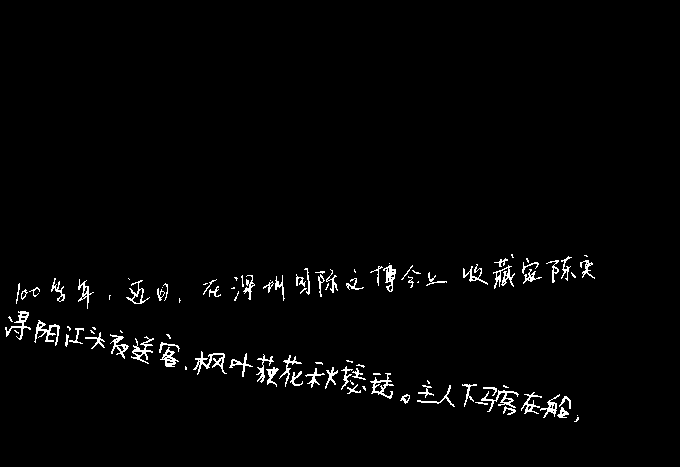 100多年，近日，在深圳国际文博会上收藏家陈实
浔阳江头夜送客，枫叶荻花秋瑟瑟。主人下马客在船，